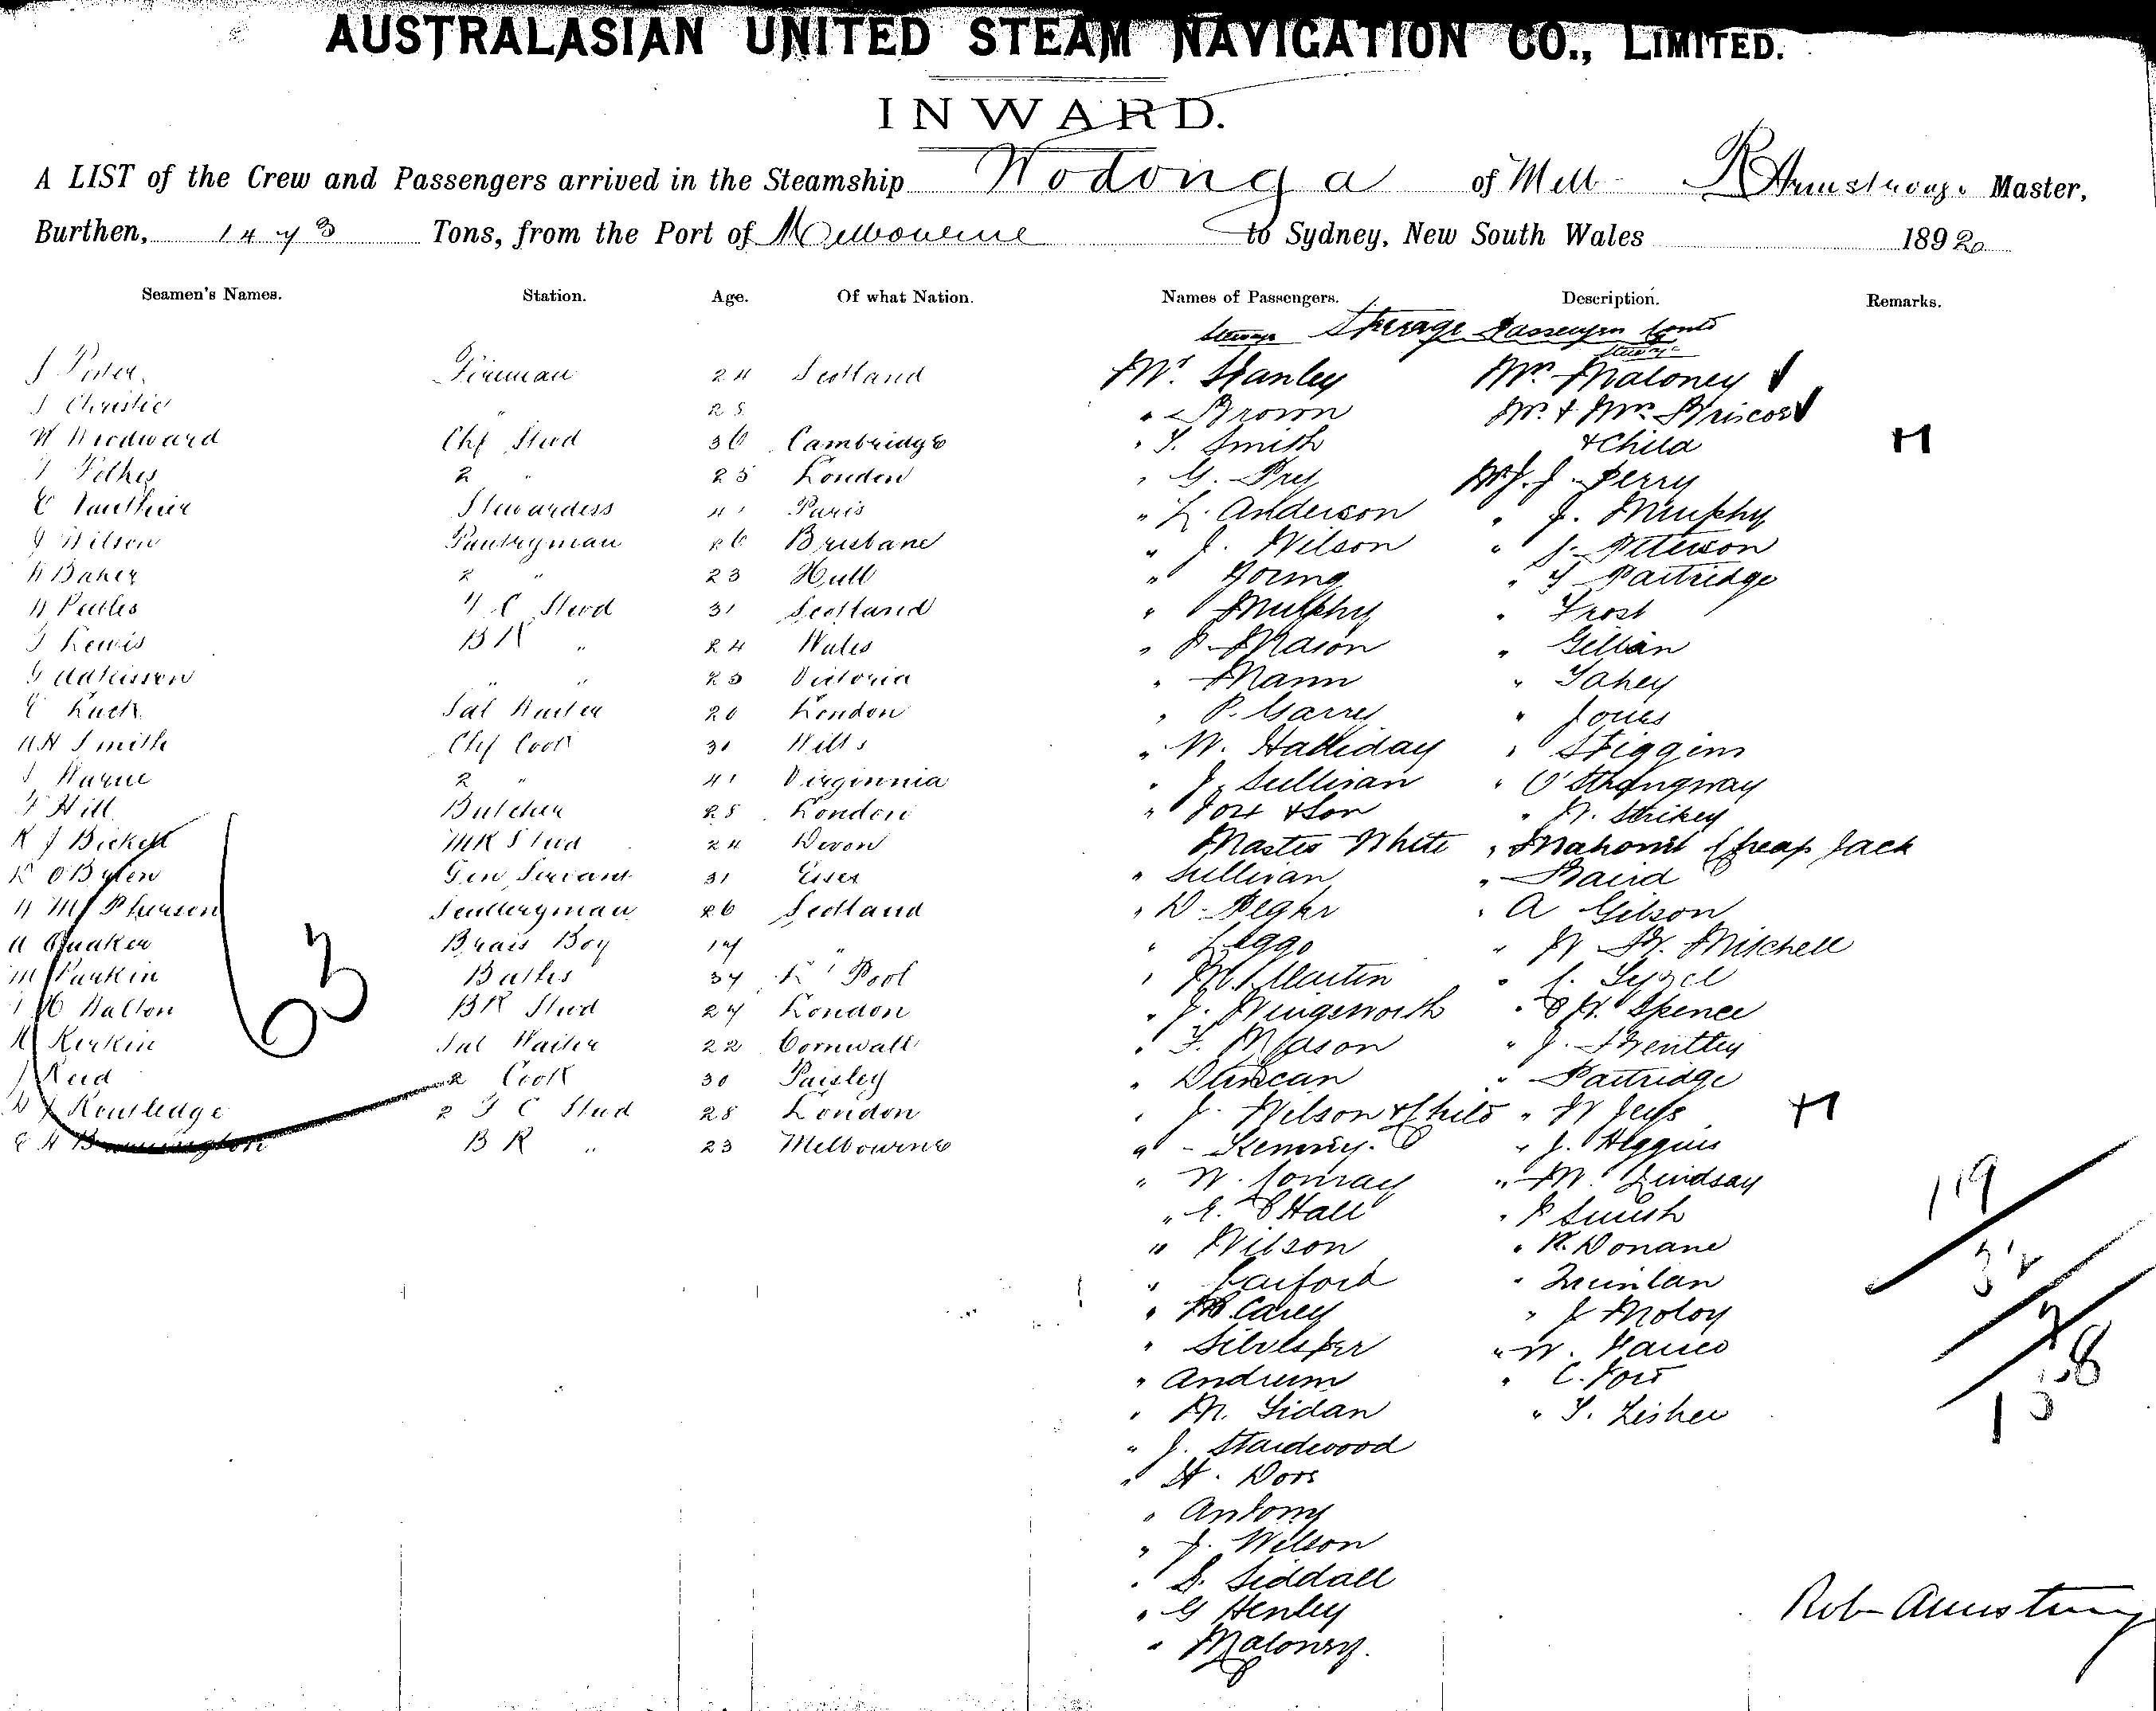 AUSTRALASIAN UNITED STEAM NAVIGATION CO., LIMITED.
INWARD.
A LIST of the Crew and Passengers arrived in the Steamship Wodonga of Melb R Armstrong. Master,
Burthen, 1473 Tons, from the Port of Melbourne to Sydney, New South Wales 1892
Seamen's Names. Station. Age. Of what Nation. Names of Passengers. Description. Remarks.
Steerage Steerage Passengers Contd
Fireman 24 Scotland Mr. Stanley Mrs Maloney
J Christie " 28 " Brown Mr. & Mrs Briscoe
W Woodward Chf Stwd 36 Cambridge " T. Smith & Child
2 " 25 London " G. Mr J. Perry
Stewardess 41 Paris " L. Anderson " J. Murphy
G Wilson Pantryman 26 Brisbane " J. Wilson " J. Peterson
W Baker 2 " 23 Hull " Young " Partridge
H Peebles F C Stwd 31 Scotland " Murphy " Frost
J Lewis BR " 24 Wales " Mason " Gillian
G Adkisson " " 23 Victoria " Mann " Fahey
E Luck Sal Waiter 20 London " P. Garvey " Jones
AH Smith Chf Cook 31 Wilts " W. Halliday " Stiggins
2 " 41 Virginnia " J. Sullivan " O'Strongway
F Hill Butcher 28 London " Fox & Son " Strikey
R J Bickell MR Stwd 24 Devon Master White " Cheap Jack
R O'Brien Gen Servant 31 Essex " Sullivan " Baird
H McPherson Sculleryman 26 Scotland " D. " A Gibson
A Quaker Brass Boy 17 " " Leggo " W. Mitchell
M Parkin Baths 37 L'Pool " M. Martin
H Halton BR Stwd 27 London " J. Wingsworth " Spence
H Kerkin Sal Waiter 22 Cornwall " F. Mason " J. Brentley
J Reid 2 Cook 30 Paisley " Duncan " Partridge
W J Routledge 2 F C Stwd 28 London " J. Wilson & Child " W Jeys
E A Bonnington B R " 23 Melbourne " Kenny. " J. Higgins
" W. Conray " M. Lindsay
" E. Hall " P Smith
" Wilson " R. Donane
" Garford " Quinlan
" Carey " J Moloy
" Silvester " W.
" Andrum " C. Ford
" M. Sidan " T. Lisher
" J. Standwood
" H. Dors
" Antony
" J. Wilson
" S. Siddall
" G Henley
" Maloney.
63
119
32
Rob Armstrong